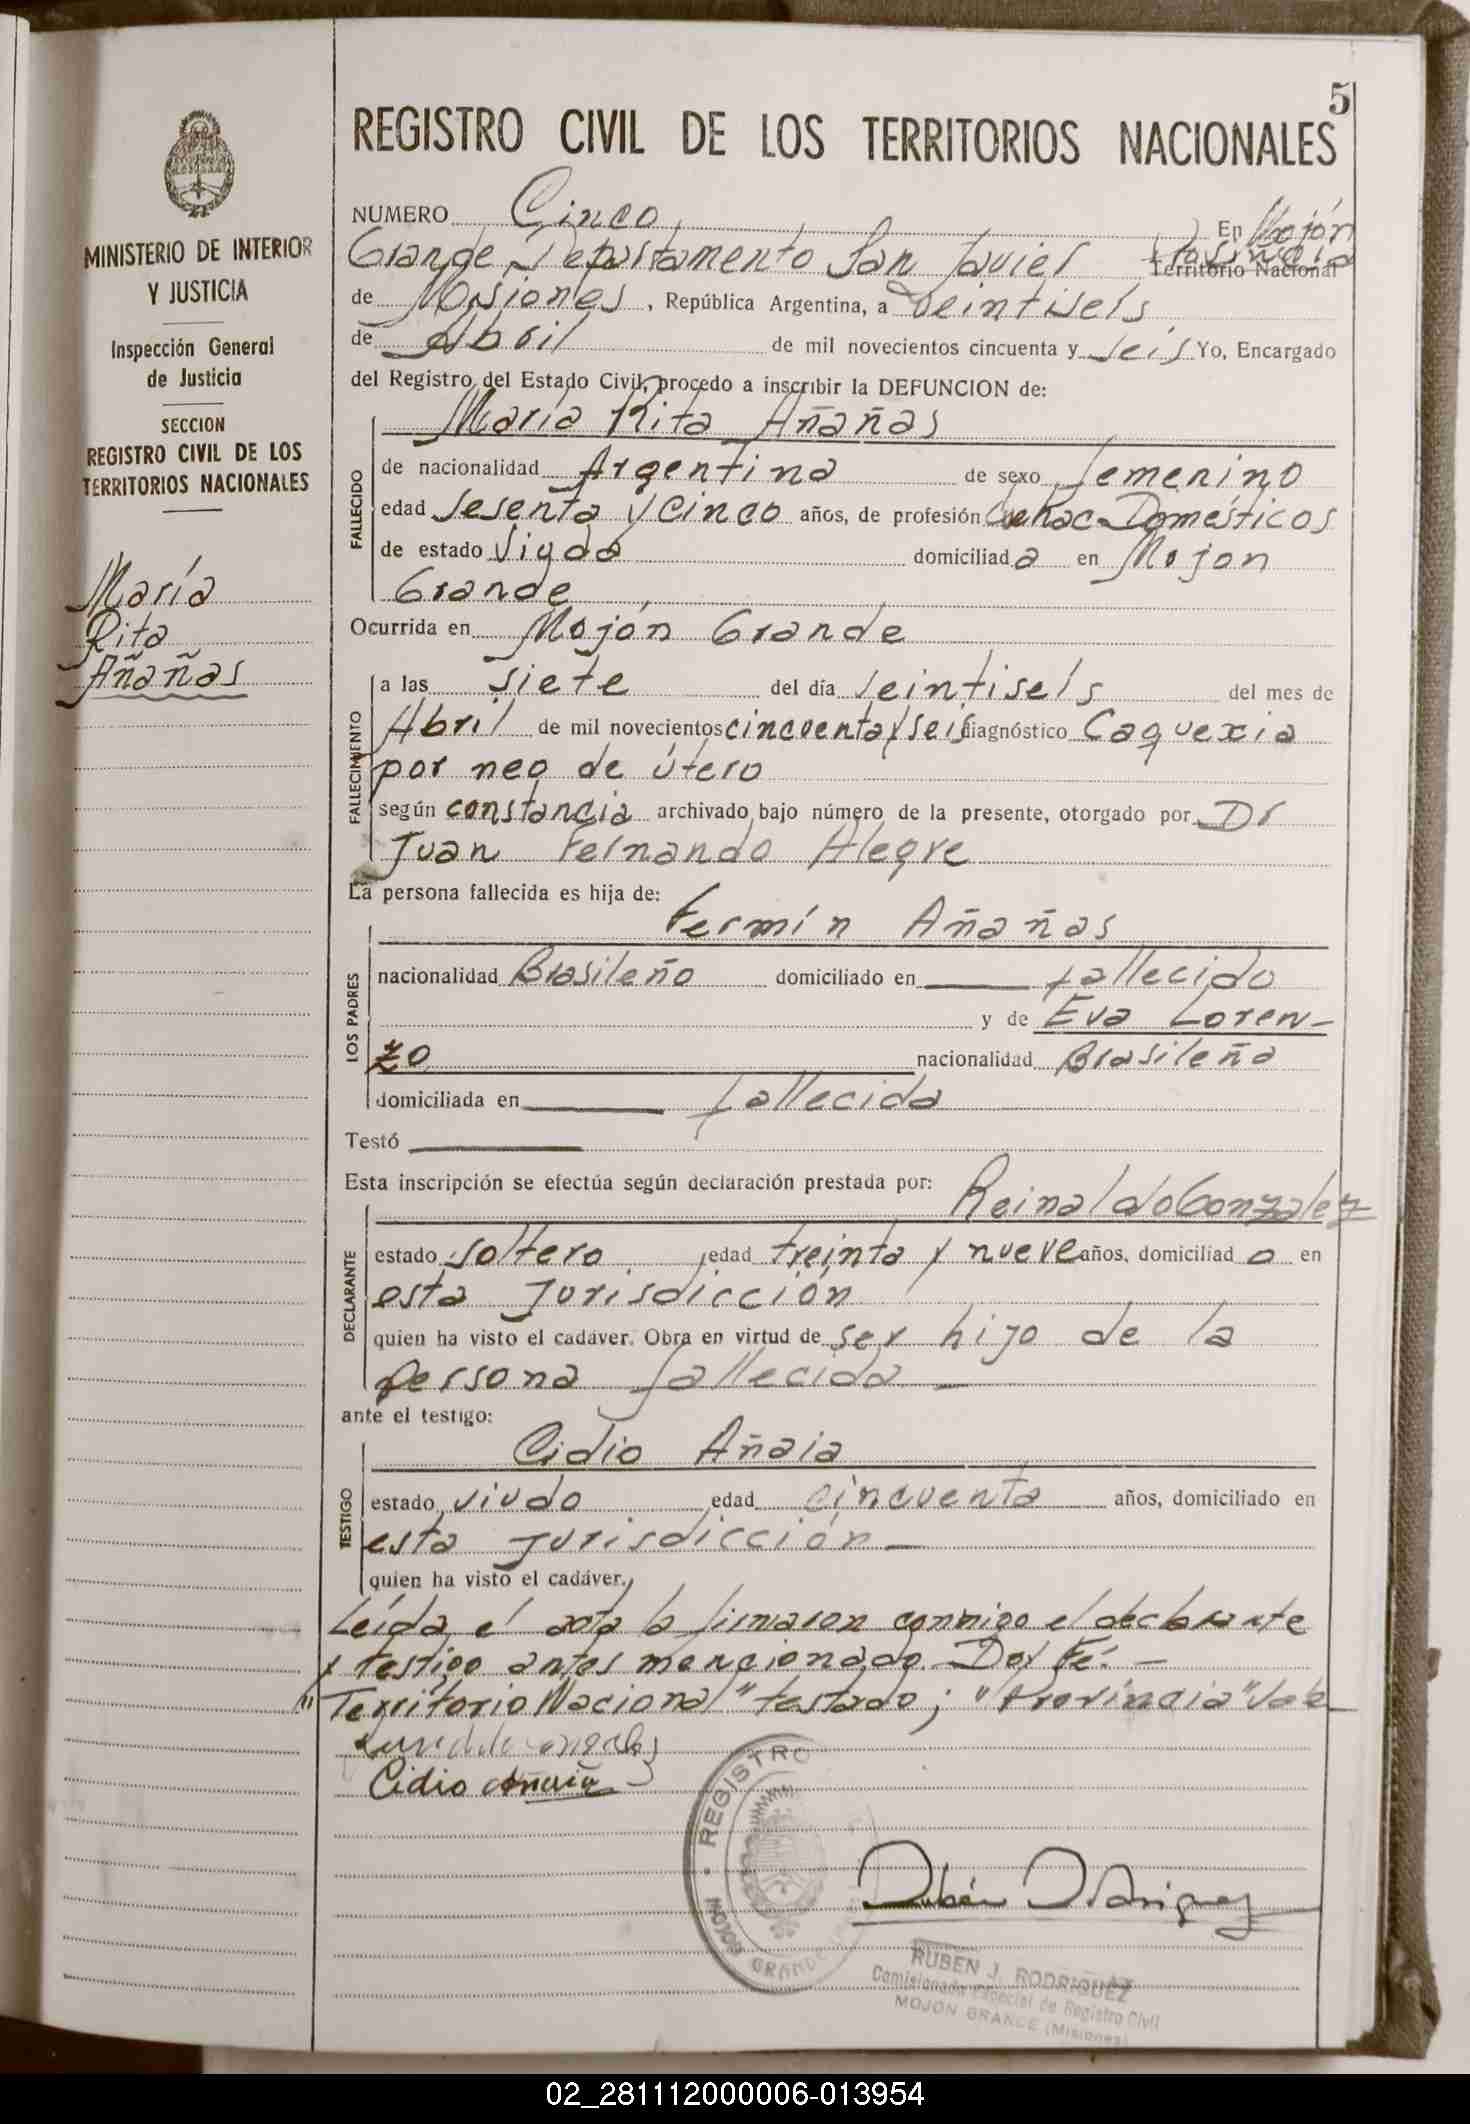 5
REGISTRO CIVIL DE LOS TERRITORIOS NACIONALES
MINISTERIO DE INTERIOR
Y JUSTICIA
Inspección General
de Justicia
SECCION
REGISTRO CIVIL DE LOS
TERRITORIOS NACIONALES
María
Rita
Añañas
NUMERO Cinco En Mojón
Grande, Departamento San Javier Provincia
Territorio Nacional
de Misiones, República Argentina, a Veintiseis
de Abril de mil novecientos cincuenta y seis Yo, Encargado
del Registro del Estado Civil, procedo a inscribir la DEFUNCION de:
María Rita Añañas
FALLECIDO
de nacionalidad Argentina de sexo femenino
edad sesenta y cinco años, de profesión Quehac. Domésticos
de estado Viuda domiciliad a en Mojon
Grande
Ocurrida en Mojón Grande
FALLECIMIENTO
a las siete del día veintiseis del mes de
Abril de mil novecientos cincuenta y seis diagnóstico Caquexia
por neo de útero
según constancia archivado bajo número de la presente, otorgado por Dr
Juan Fernando Alegre
La persona fallecida es hija de:
Fermín Añañas
LOS PADRES
nacionalidad Brasileño domiciliado en fallecido
y de Eva Loren-
zo nacionalidad Brasileña
domiciliada en fallecida
Testó
Esta inscripción se efectúa según declaración prestada por: Reinaldo Gonzalez
DECLARANTE
estado soltero edad treinta y nueve años, domiciliad o en
esta Jurisdicción
quien ha visto el cadáver. Obra en virtud de ser hijo de la
persona fallecida
ante el testigo:
Cidio Añaia
TESTIGO
estado viudo edad cincuenta años, domiciliado en
esta Jurisdicción
quien ha visto el cadáver.
Leída el acta la firmaron conmigo el declarante
y testigo antes mencionado. Doy Fé. -
"Territorio Nacional" testado; "Provincia" Vale
Cidio Anaia
REGISTRO
MOJON GRANDE
Rubén J. Rodriguez
RUBEN J. RODRIGUEZ
Comisionado Especial de Registro Civil
MOJON GRANDE (Misiones)
02_281112000006-013954